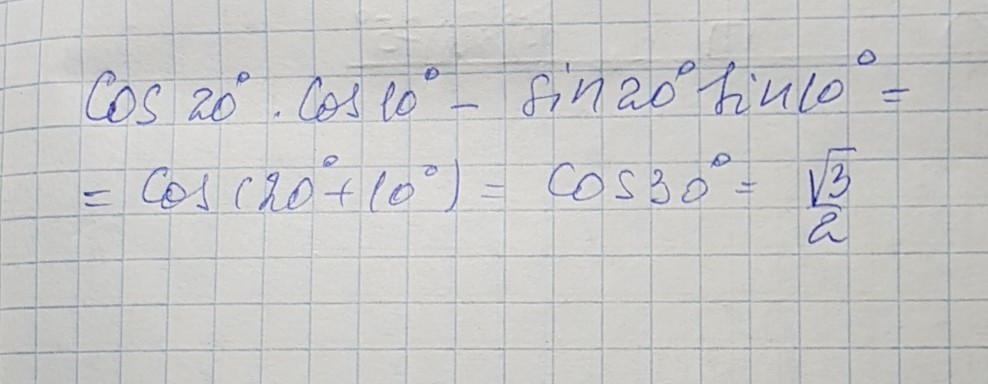 Cos 20° · Cos 10° – sin 20° sin 10° =
= Cos (20° + 10°) = Cos 30° = √3/2